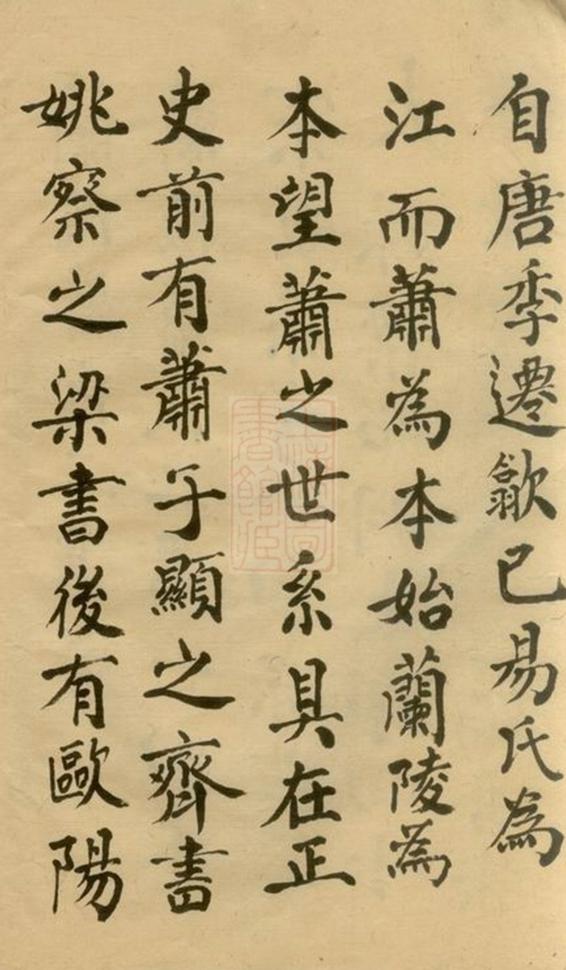 自唐季遷歙已易氏為
江而蕭為本始蘭陵為
本望蕭之世系具在正
史前有蕭子顯之齊書
姚察之梁書後有歐陽